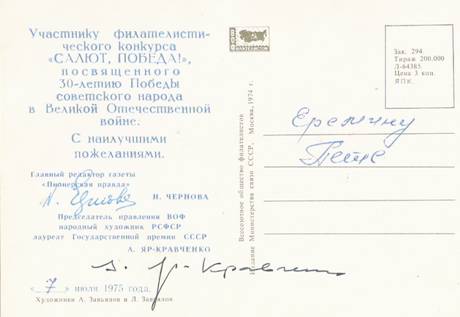 Участнику филателисти-
ческого конкурса
«САЛЮТ, ПОБЕДА!»,
посвященного
30-летию Победы
советского народа
в Великой Отечественной
войне.
С наилучшими
пожеланиями.
Главный редактор газеты
«Пионерская правда»
Н. ЧЕРНОВА
Председатель правления ВОФ
народный художник РСФСР
лауреат Государственной премии СССР
А. ЯР-КРАВЧЕНКО
А. Яр-Кравченко
«7» июля 1975 года.
Художники А. Завьялов и Л. Завьялов
Всесоюзное общество филателистов
Издание Министерства связи СССР, Москва, 1974 г.
Зак. 294
Тираж 200.000
Л-64385
Цена 3 коп.
ЯПК.
Еремину
Пете